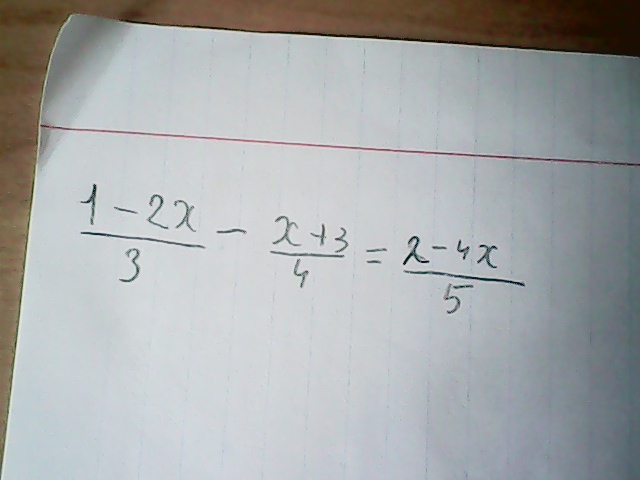 \frac{1-2x}{3} - \frac{x+3}{4} = \frac{2-4x}{5}